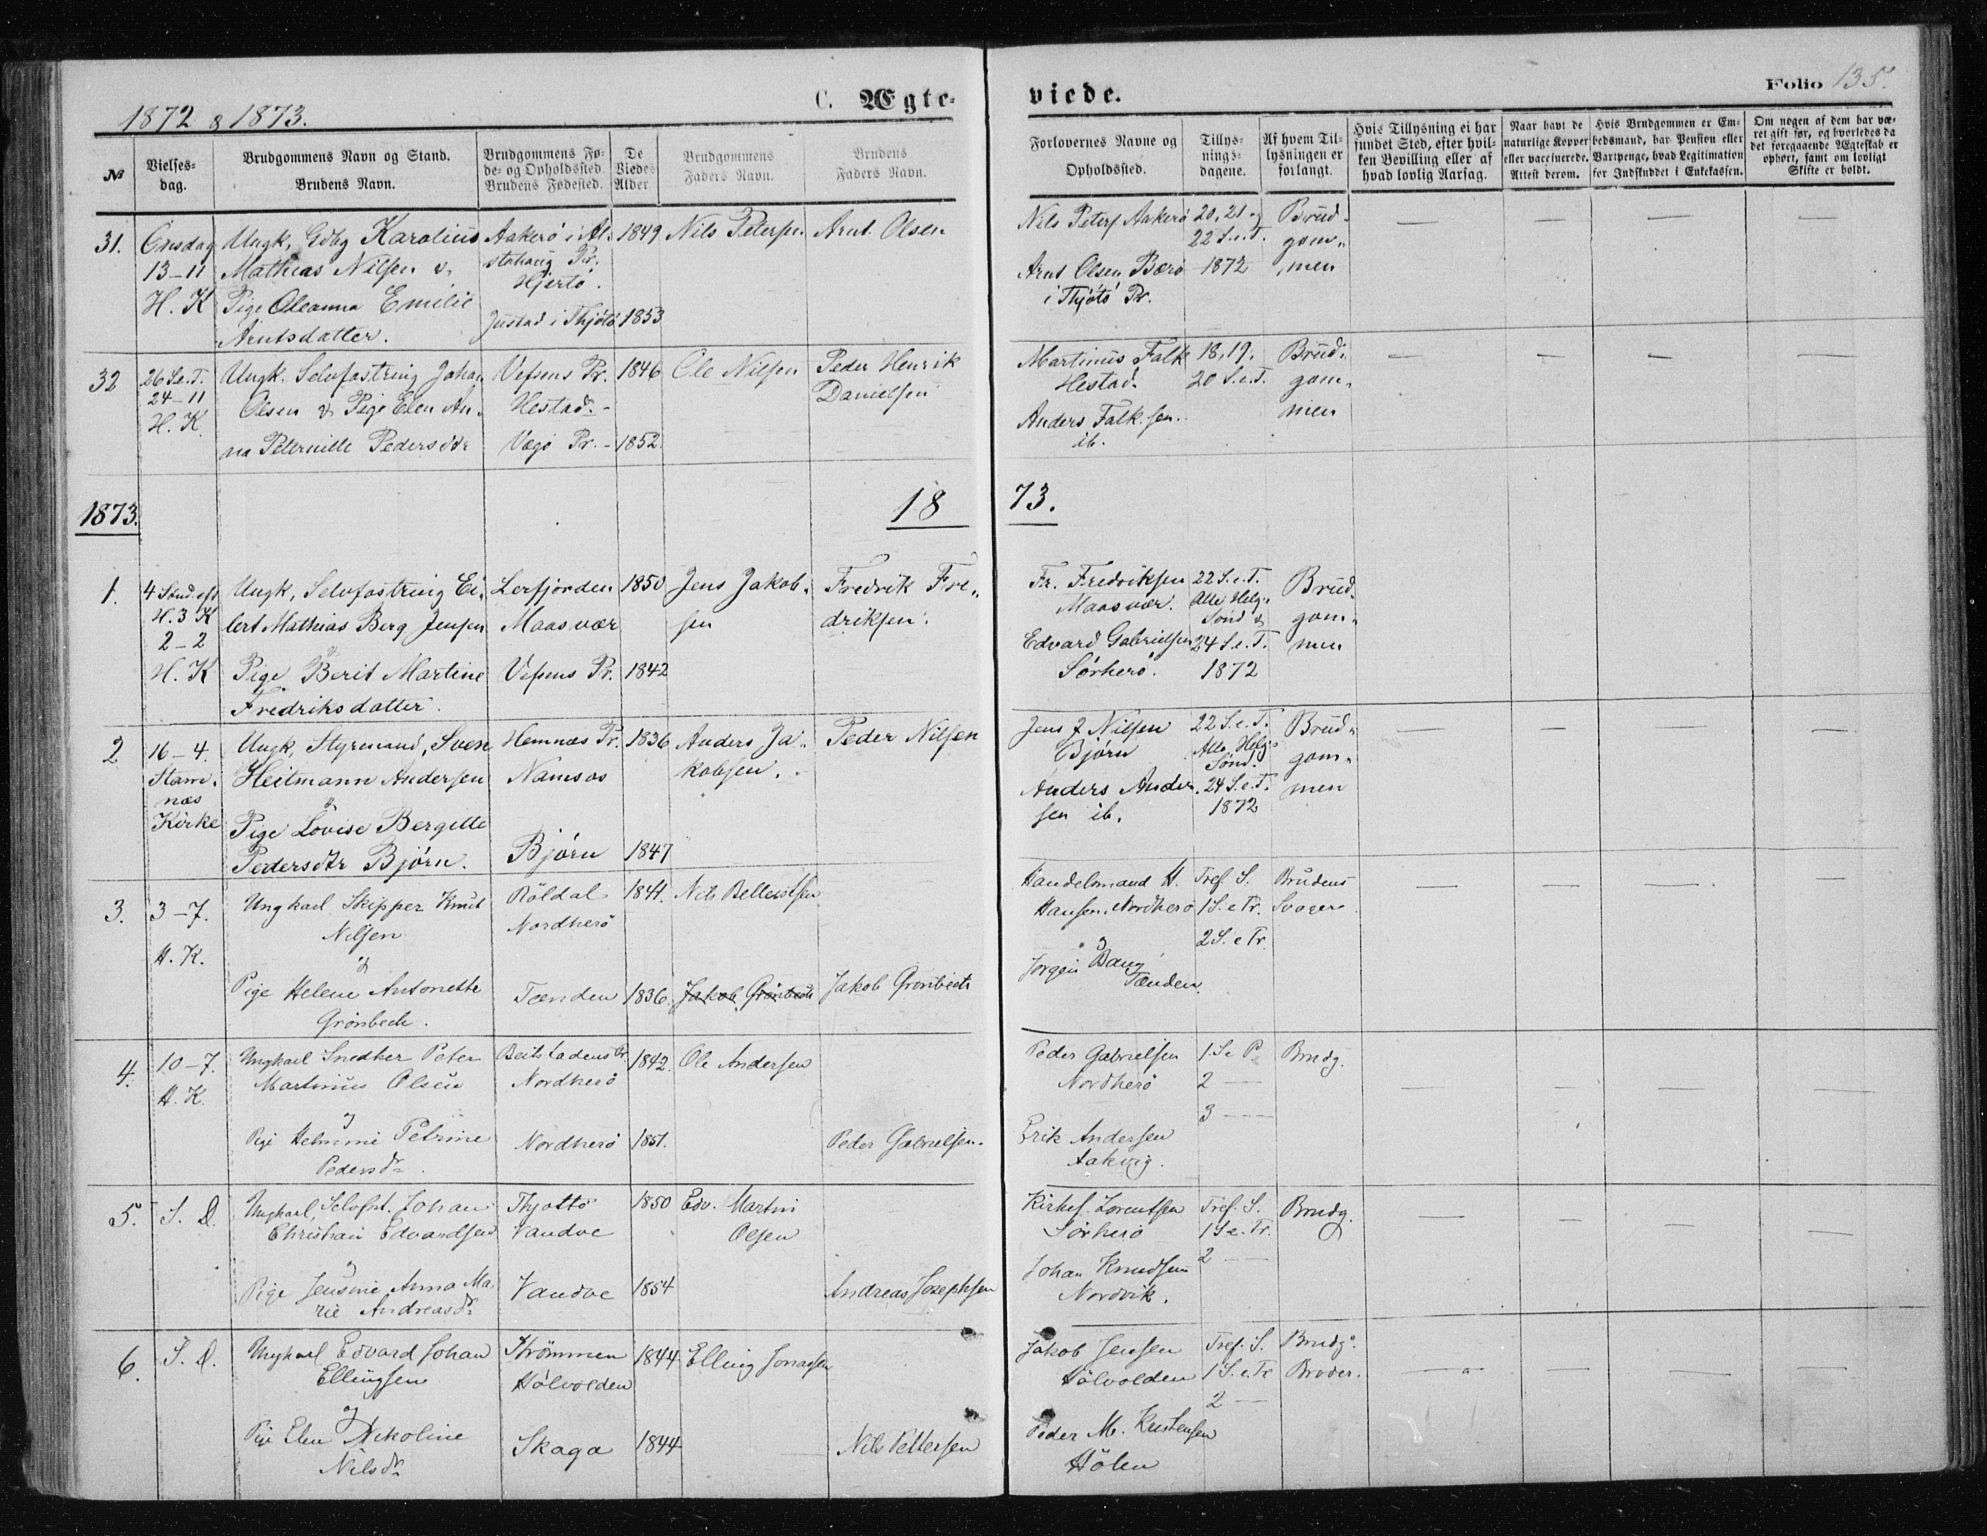 1872 & 1873.
C. Ægte-
viede.
Folio 135.
No
Vielses-
dag.
Brudgommens Navn og Stand.
Brudens Navn.
Brudgommens Fø-
de- og Opholdssted.
Brudens Fødested.
De
Viedes
Alder
Brudgommens
Faders Navn.
Brudens
Faders Navn.
Forlovernes Navne og
Opholdssted.
Tillys-
nings-
dagene.
Af hvem Til-
lysningen er
forlangt.
Hvis Tillysning ei har
fundet Sted, efter hvil-
ken Bevilling eller af
hvad lovlig Aarsag.
Naar havt de
naturlige Kopper
eller vaccinerede.
Attest derom.
Hvis Brudgommen er Em-
bedsmand, har Pension eller
Vartpenge, hvad Legitimation
for Indskuddet i Enkekassen.
Om nogen af dem har væ-
ret gift før, og hvorledes da
det foregaaende Ægteskab er
ophørt, samt om lovligt
Skifte er holdt.
31.
Onsdag
13-11
H. K
Ungk, Karolius
Mathias Nilsen &
Pige Oleanna Emilie
Arntsdatter.
Aakerö i Al-
stahaug Pr.
Hjertö.
Justad i Thjötö
1849
1853
Nils Petersen
Arnt Olsen
Nils Peters. Aakerö
Arnt Olsen Bærö
i Thjötö Pr.
20, 21 og
22 S.e.T.
1872
Brud-
gom-
men
32
26 S.e.T.
24-11
H. K.
Ungk. Selvfostring Johan
Olsen & Pige Elen An-
na Peternille Pedersdtr
Vefsens Pr.
Hestad.
Vegö Pr.
1846
1852.
Ole Nilsen
Peder Henrik
Danielsen
Martinus Falk
Hestad.
Anders Falk sen.
ib.
18, 19.
20 S.e.T.
Brud-
gom-
men
1873.
18
73.
1.
4 Sønd. eft
H. 3 K
2-2
H. K
Ungk, Selvfostring Ei-
lert Mathias Berg Jensen
&
Pige Berit Martine
Fredriksdatter.
Lerfjorden
Maasvær
Vefsens Pr.
1850
1842
Jens Jakob-
sen
Fredrik Fre-
driksen.
Fr. Fredriksen
Maasvær.
Edvard Gabrielsen
Sörherö.
22 S.e.T.
Alle Helg.
Sønd &
24 S.e.T.
1872
Brud-
gom-
men
2
16-4.
Stam-
næs
Kirke
Ungk, Styrmand, Sven
Heitmann Andersen
&
Pige Lovise Bergitte
Pedersdtr Bjørn.
Hemnæs Pr.
Namsos
Bjørn
1836
1847
Anders Ja-
kobsen.
Peder Nilsen
Jens J Nilsen
Bjørn
Anders Ander-
sen ib.
22 S.e.T.
Alle Helg.
Sønd.
24 S.e.T.
1872
Brud-
gom-
men
3.
3-7.
H. K.
Ungkarl Skipper Knut
Nilsen
&
Pige Helene Antonette
Grönbech.
Röldal
Nordherö
Tenden
1841.
1836.
Nils Bellestsen
Jakob Grönbech
Jakob Grönbech
Handelsmand H.
Hansen Nordherö
og
Jörgen Baug
Tænden.
Tref. S.
1 S. e Tr.
2 S. e Tr.
Brudens
Svoger.
4.
10-7.
H. K.
Ungkarl Snedker Peter
Martinus Olsen
og
Pige Helmine Petrine
Pedersdr.
Beitstadens Pr
Nordherö
Nordherö
1842.
1851.
Ole Andersen
Peder Gabrielsen.
Peder Gabrielsen
Nordherö
Erik Andersen
Aakvig.
1 S e P.
2 —
3 —
Brudg.
5.
S. D.
Ungkarl, Selvfst. Johan
Christian Edvardsen
og
Pige Jensine Anna Ma-
rie Andreasdr
Thjottö
Vandve
Vandve
1850
1854
Edv. Martin
Olsen
Andreas Josephsen
Kirkes. Lorentsen
Sörherö
Johan Knudsen
Nordvik.
Tref. S.
1 S e. Tr.
2 —
Brudg.
6.
S. D.
Ungkarl Edvard Johan
Ellingsen
og
Pige Elen Nikoline
Nilsdr
Strömmen
Hölvolden
Skaga
1844
1844
Elling Jonassen
Nils Pettersen
Jakob Jensen
Hölvolden
Peder M. Kristensen
Hölen
Tref. S.
1 S.e.Tr
2 —
Brudg.
Broder.